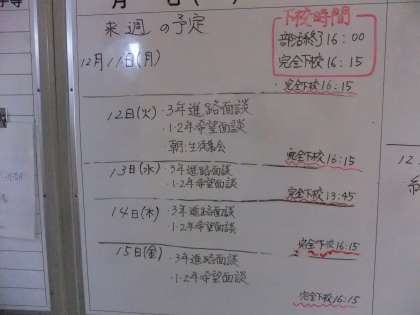 来週の予定
下校時間
部活終了16:00
完全下校16:15
12月11日(月)
完全下校16:15
12日(火)・3年進路面談
・1・2年希望面談
朝:生徒集会
完全下校16:15
13日(水)・3年進路面談
・1・2年希望面談
完全下校13:45
14日(木)・3年進路面談
・1・2年希望面談
完全下校16:15
15日(金)・3年進路面談
・1・2年希望面談
完全下校16:15